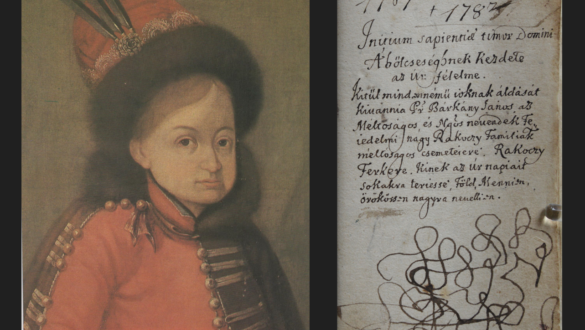 † 1782
Initium sapientiæ timor Domini
A bölcseségönek kezdete
az Úr félelme.
Kisül mindennemű ioknak áldását
Kivánnia Pr Bárkány János az
Méltoságos és Ngos növendék Fe,
iedelmi nagy Rakoczy Familiák
méltoságos csemeteiere Rakoczy
Ferköre. Kinek az Úr napiait
sokakra teriesse, Föld, Mennien,
örökössen nagyra nevellien.